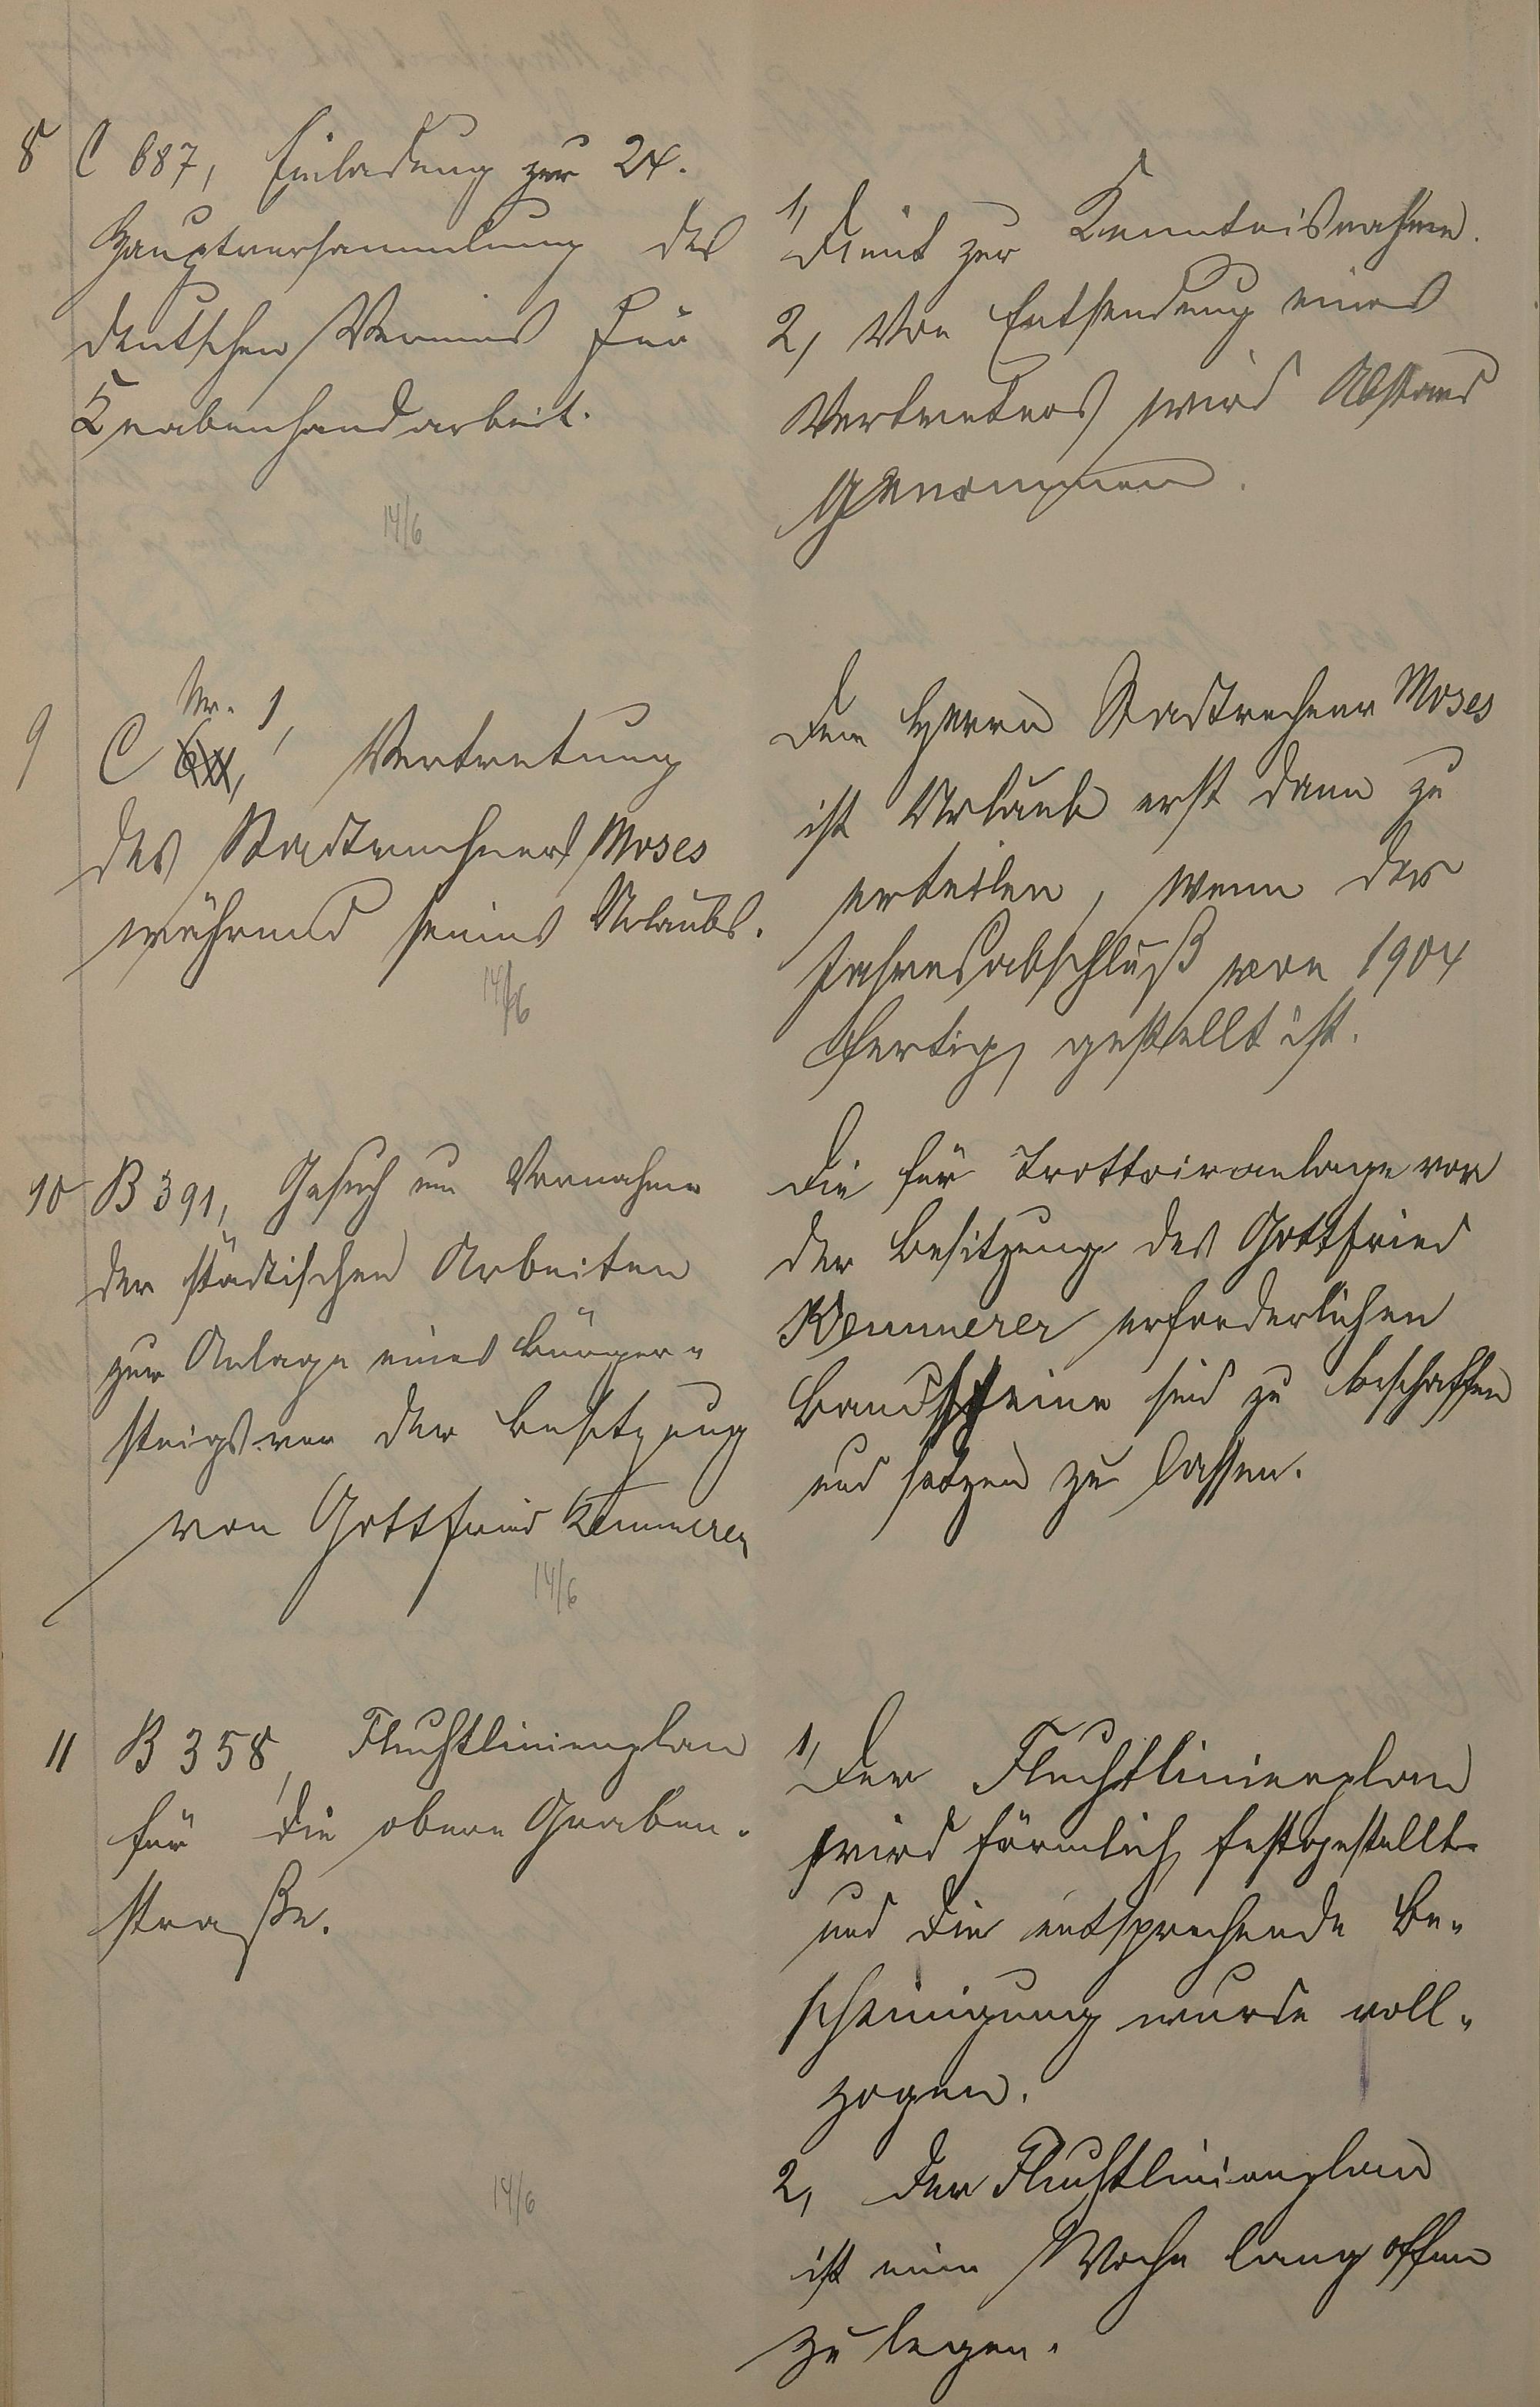 8 C 687, Einladung zur 24.
Hauptversammlung des
deutschen Vereins für
Knabenhandarbeit.
14/6
1, Dient zur Kenntnisnahme.
2, Von Entsendung eines
Vertreters wird Abstand
genommen.
9 C Nr. 1, Vertretung
des Stadtrechners Moses
während seines Urlaubs.
14/6
Dem Herrn Stadtrechner Moses
ist Urlaub erst dann zu
erteilen, wenn der
Jahresabschluß von 1904
fertig gestellt ist.
10 B 391, Gesuch um Vornahme
der städtischen Arbeiten
zur Anlage eines Bürger-
steigs vor der Besitzung
von Gottfried Kemmerer
14/6
Die für Trottoiranlage vor
der Besitzung des Gottfried
Kemmerer erforderlichen
Bandsteine sind zu beschaffen
und setzen zu lassen.
11 B 358, Fluchtlinienplan
für die obere Graben-
straße.
14/6
1, Der Fluchtlinienplan
wird förmlich festgestellt
und die entsprechende Be-
scheinigung wurde voll-
zogen.
2, Der Fluchtlinienplan
ist eine Woche lang offen
zu legen.